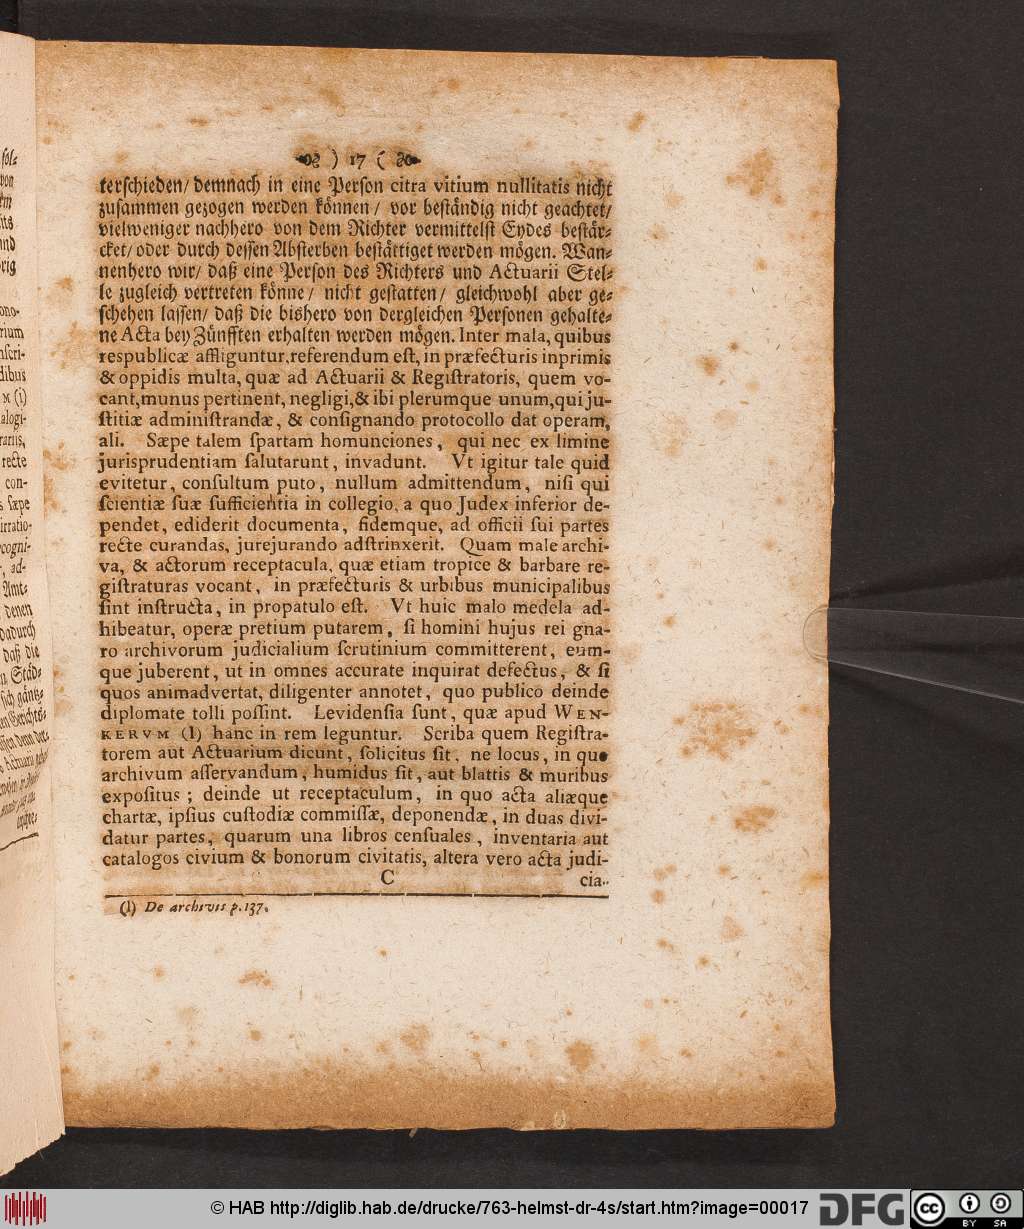 ) 17 (
terschieden/ demnach in eine Person citra vitium nullitatis nicht
zusammen gezogen werden können/ vor beständig nicht geachtet/
vielweniger nachhero von dem Richter vermittelst Eydes bestär-
cket/ oder durch dessen Absterben bestättiget werden mögen. Wan-
nenhero wir/ daß eine Person des Richters und Actuarii Stel-
le zugleich vertreten könne/ nicht gestatten/ gleichwohl aber ge-
schehen lassen/ daß die bishero von dergleichen Personen gehalte-
ne Acta bey Zünfften erhalten werden mögen. Inter mala, quibus
respublicæ affliguntur, referendum eſt, in præfecturis inprimis
& oppidis multa, quæ ad Actuarii & Regiſtratoris, quem vo-
cant, munus pertinent, negligi, & ibi plerumque unum, qui ju-
ſtitiæ adminiſtrandæ, & conſignando protocollo dat operam,
ali. Sæpe talem ſpartam homunciones, qui nec ex limine
jurisprudentiam ſalutarunt, invadunt. Vt igitur tale quid
evitetur, conſultum puto, nullum admittendum, niſi qui
ſcientiæ ſuæ ſufficientia in collegio, a quo Judex inferior de-
pendet, ediderit documenta, fidemque, ad officii ſui partes
recte curandas, jurejurando adſtrinxerit. Quam male archi-
va, & actorum receptacula, quæ etiam tropice & barbare re-
giſtraturas vocant, in præfecturis & urbibus municipalibus
ſint inſtructa, in propatulo eſt. Vt huic malo medela ad-
hibeatur, operæ pretium putarem, ſi homini hujus rei gna-
ro archivorum judicialium ſcrutinium committerent, eum-
que juberent, ut in omnes accurate inquirat defectus, & ſi
quos animadvertat, diligenter annotet, quo publico deinde
diplomate tolli poſſint. Levidenſia ſunt, quæ apud WEN-
KERVM (l) hanc in rem leguntur. Scriba quem Regiſtra-
torem aut Actuarium dicunt, ſolicitus ſit, ne locus, in quo
archivum aſſervandum, humidus ſit, aut blattis & muribus
expoſitus; deinde ut receptaculum, in quo acta aliæque
chartæ, ipſius cuſtodiæ commiſſæ, deponendæ, in duas divi-
datur partes, quarum una libros cenſuales, inventaria aut
catalogos civium & bonorum civitatis, altera vero acta judi-
C cia-
(l) De archivis p. 137.
© HAB http://diglib.hab.de/drucke/763-helmst-dr-4s/start.htm?image=00017
DFG
cc BY SA